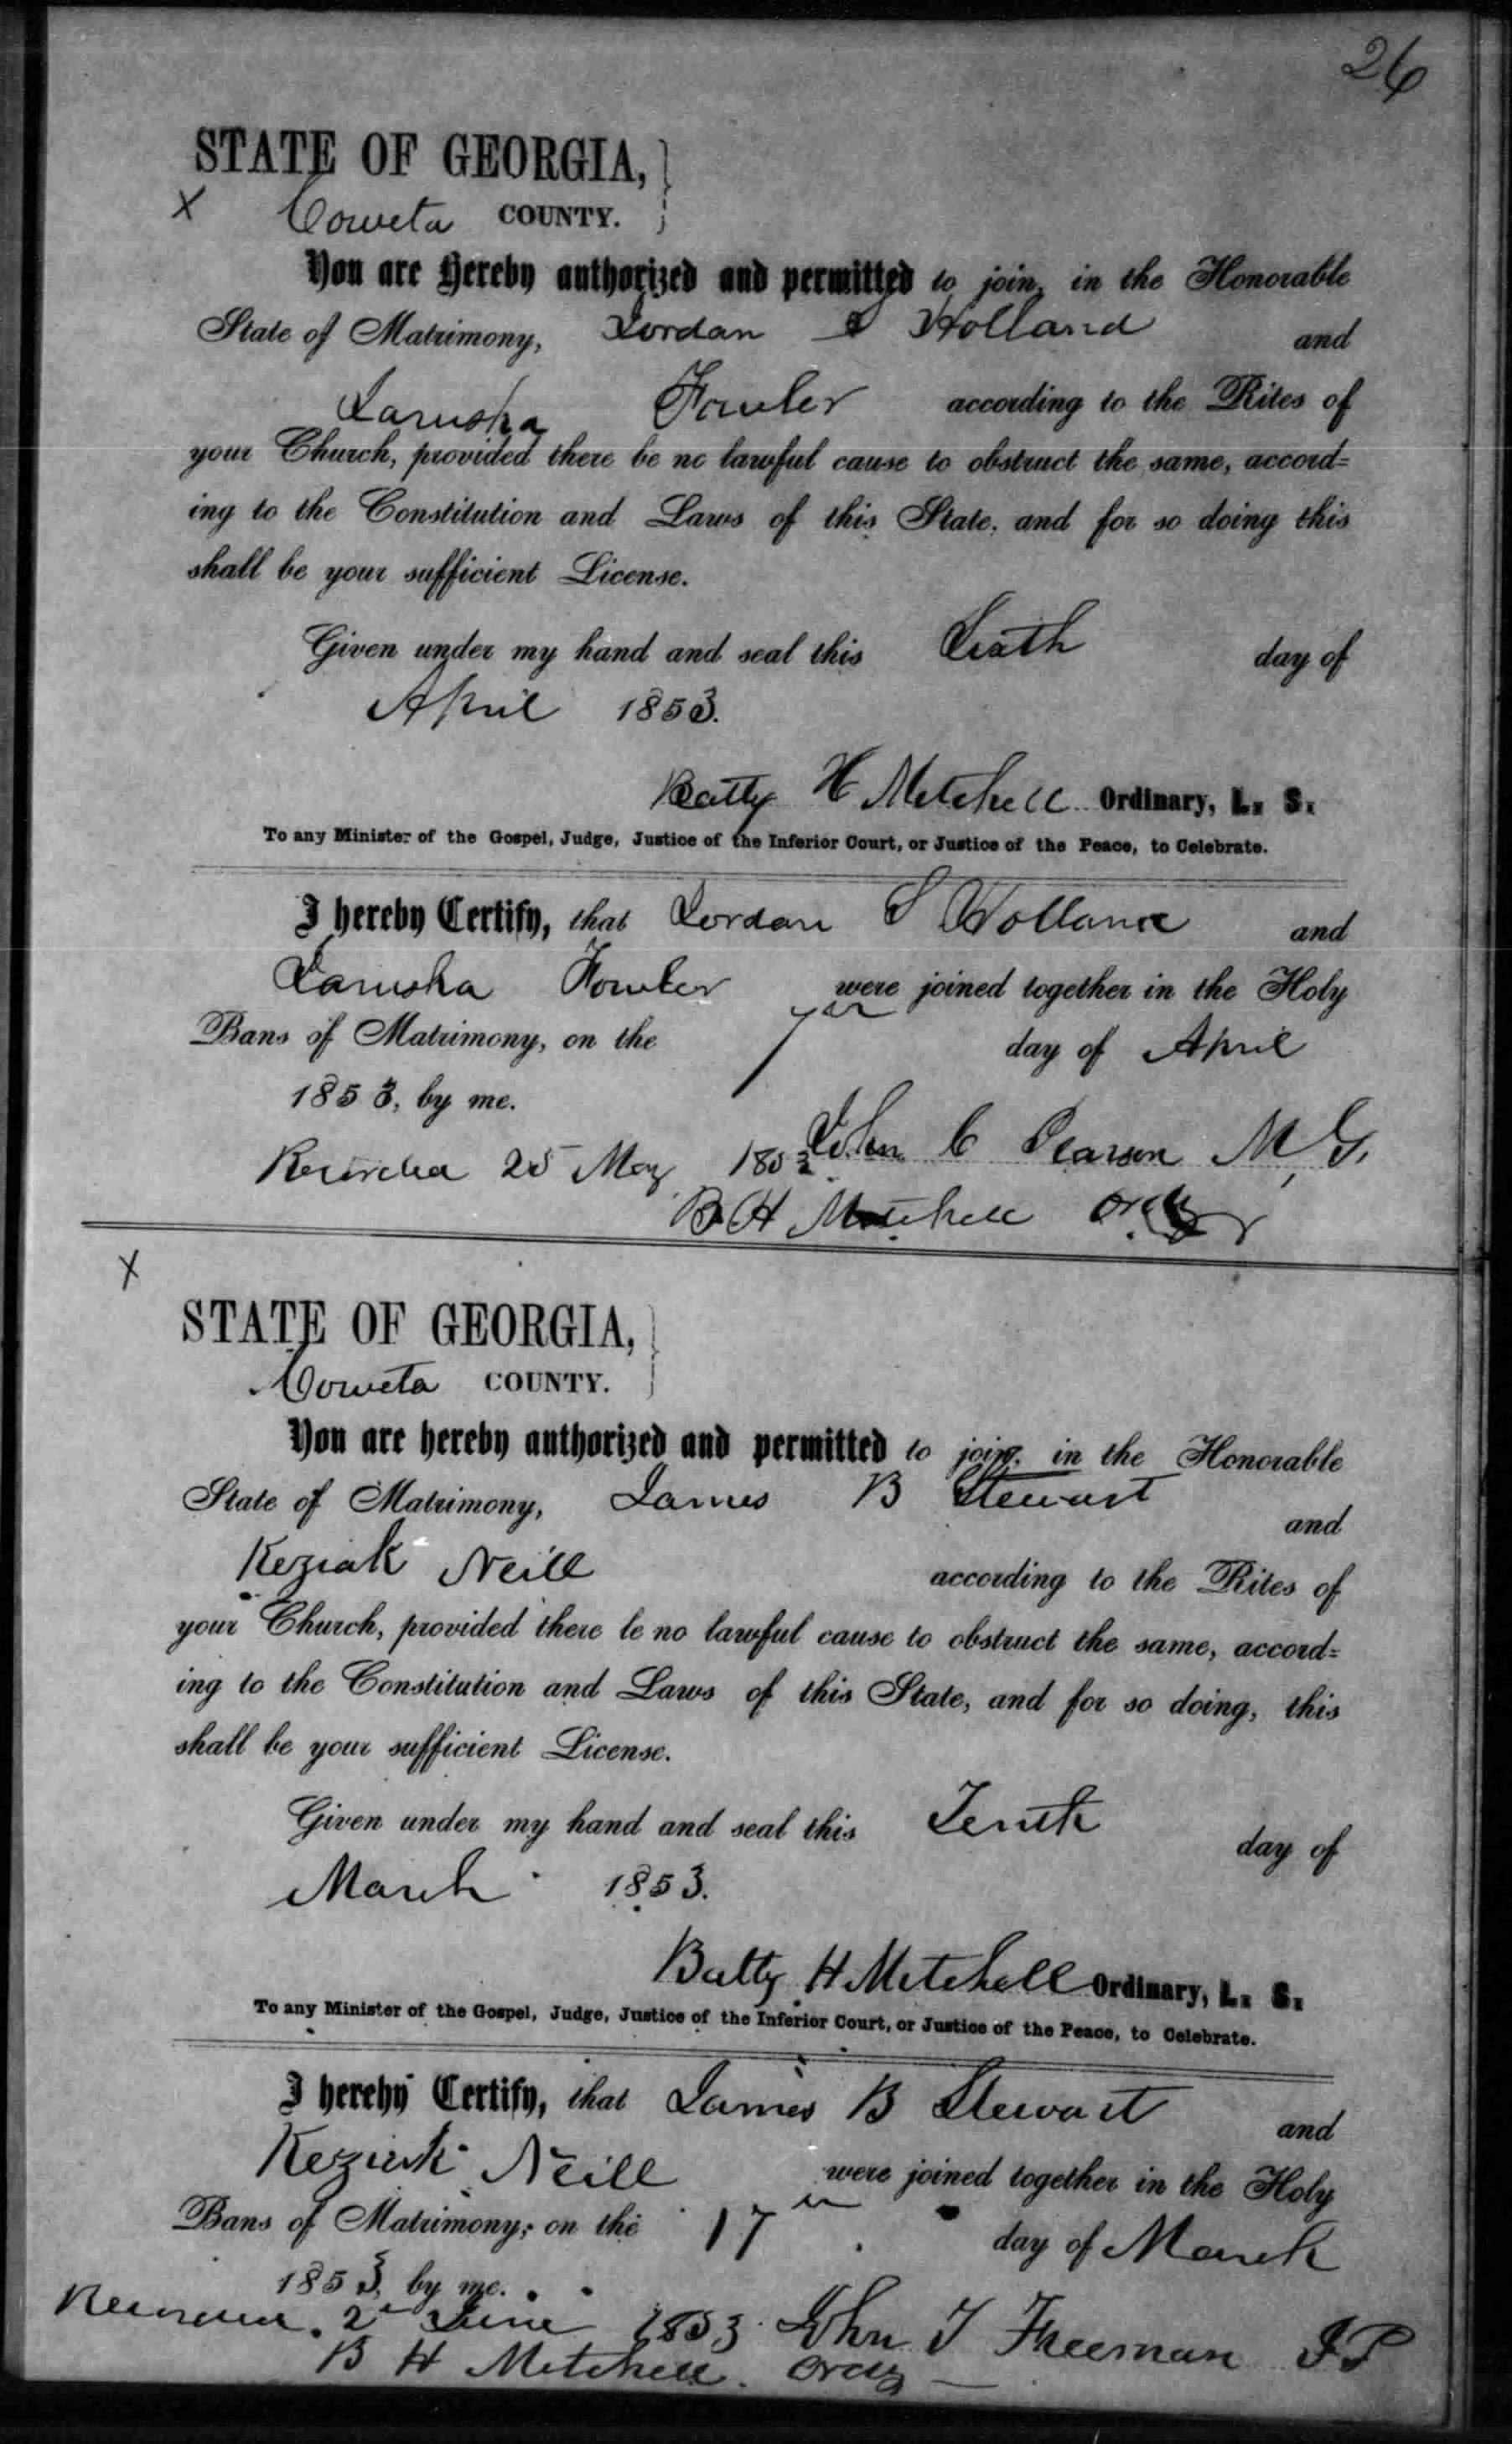 26
STATE OF GEORGIA,
X Coweta COUNTY.
You are Hereby authorized and permitted to join, in the Honorable
State of Matrimony, Jordan S Holland and
Jarusha Fowler according to the Rites of
your Church, provided there be no lawful cause to obstruct the same, accord=
ing to the Constitution and Laws of this State, and for so doing this
shall be your sufficient License.
Given under my hand and seal this Sixth day of
April 1853.
Batty H Mitchell Ordinary, L. S.
To any Minister of the Gospel, Judge, Justice of the Inferior Court, or Justice of the Peace, to Celebrate.
I hereby Certify, that Jordan S Holland and
Jarusha Fowler were joined together in the Holy
Bans of Matrimony, on the 7th day of April
1853, by me.
John C Pearson M, G,
Recorded 25 May 1853.
B H Mitchell Ordy
X
STATE OF GEORGIA,
Coweta COUNTY.
You are hereby authorized and permitted to join, in the Honorable
State of Matrimony, James B Stewart and
Keziah Neill according to the Rites of
your Church, provided there be no lawful cause to obstruct the same, accord=
ing to the Constitution and Laws of this State, and for so doing, this
shall be your sufficient License.
Given under my hand and seal this Tenth day of
March 1853.
Batty H Mitchell Ordinary, L. S.
To any Minister of the Gospel, Judge, Justice of the Inferior Court, or Justice of the Peace, to Celebrate.
I hereby Certify, that James B Stewart and
Keziah Neill were joined together in the Holy
Bans of Matrimony, on the 17th day of March
1853, by me.
Recorded 2d June 1853. John T Freeman JP
B H Mitchell. Ordy